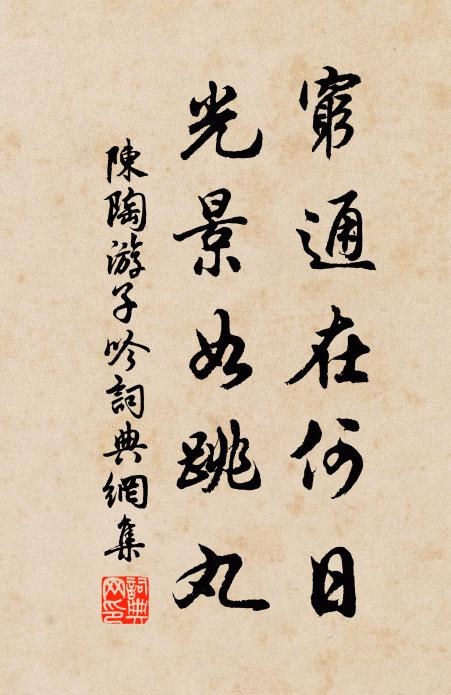 窮通在何日
光景如跳丸
陳陶游子吟詞典網集
詞典網印